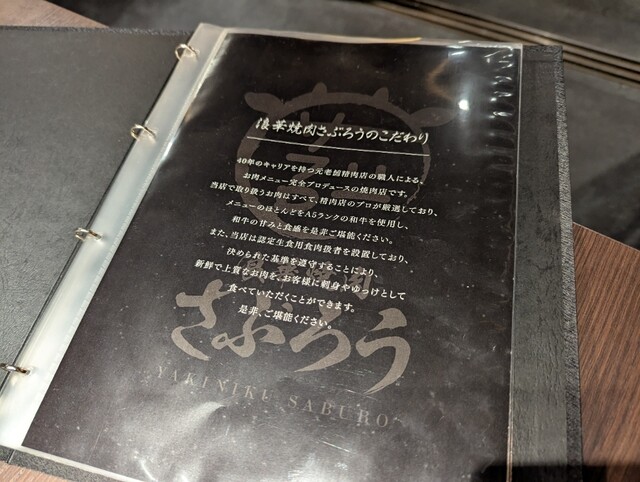 浪華焼肉さぶろうのこだわり
40年のキャリアを持つ元老舗精肉店の職人による、
お肉メニュー完全プロデュースの焼肉店です。
当店で取り扱うお肉はすべて、精肉店のプロが厳選しており、
メニューのほとんどをA5ランクの和牛を使用し、
和牛の甘みと食感を是非ご堪能ください。
また、当店は認定生食用食肉取扱者を設置しており、
決められた基準を遵守することにより、
新鮮で上質なお肉を、お客様に刺身やゆっけとして
食べていただくことができます。
是非、ご堪能ください。
浪華焼肉
さぶろう
YAKINIKU SABURO